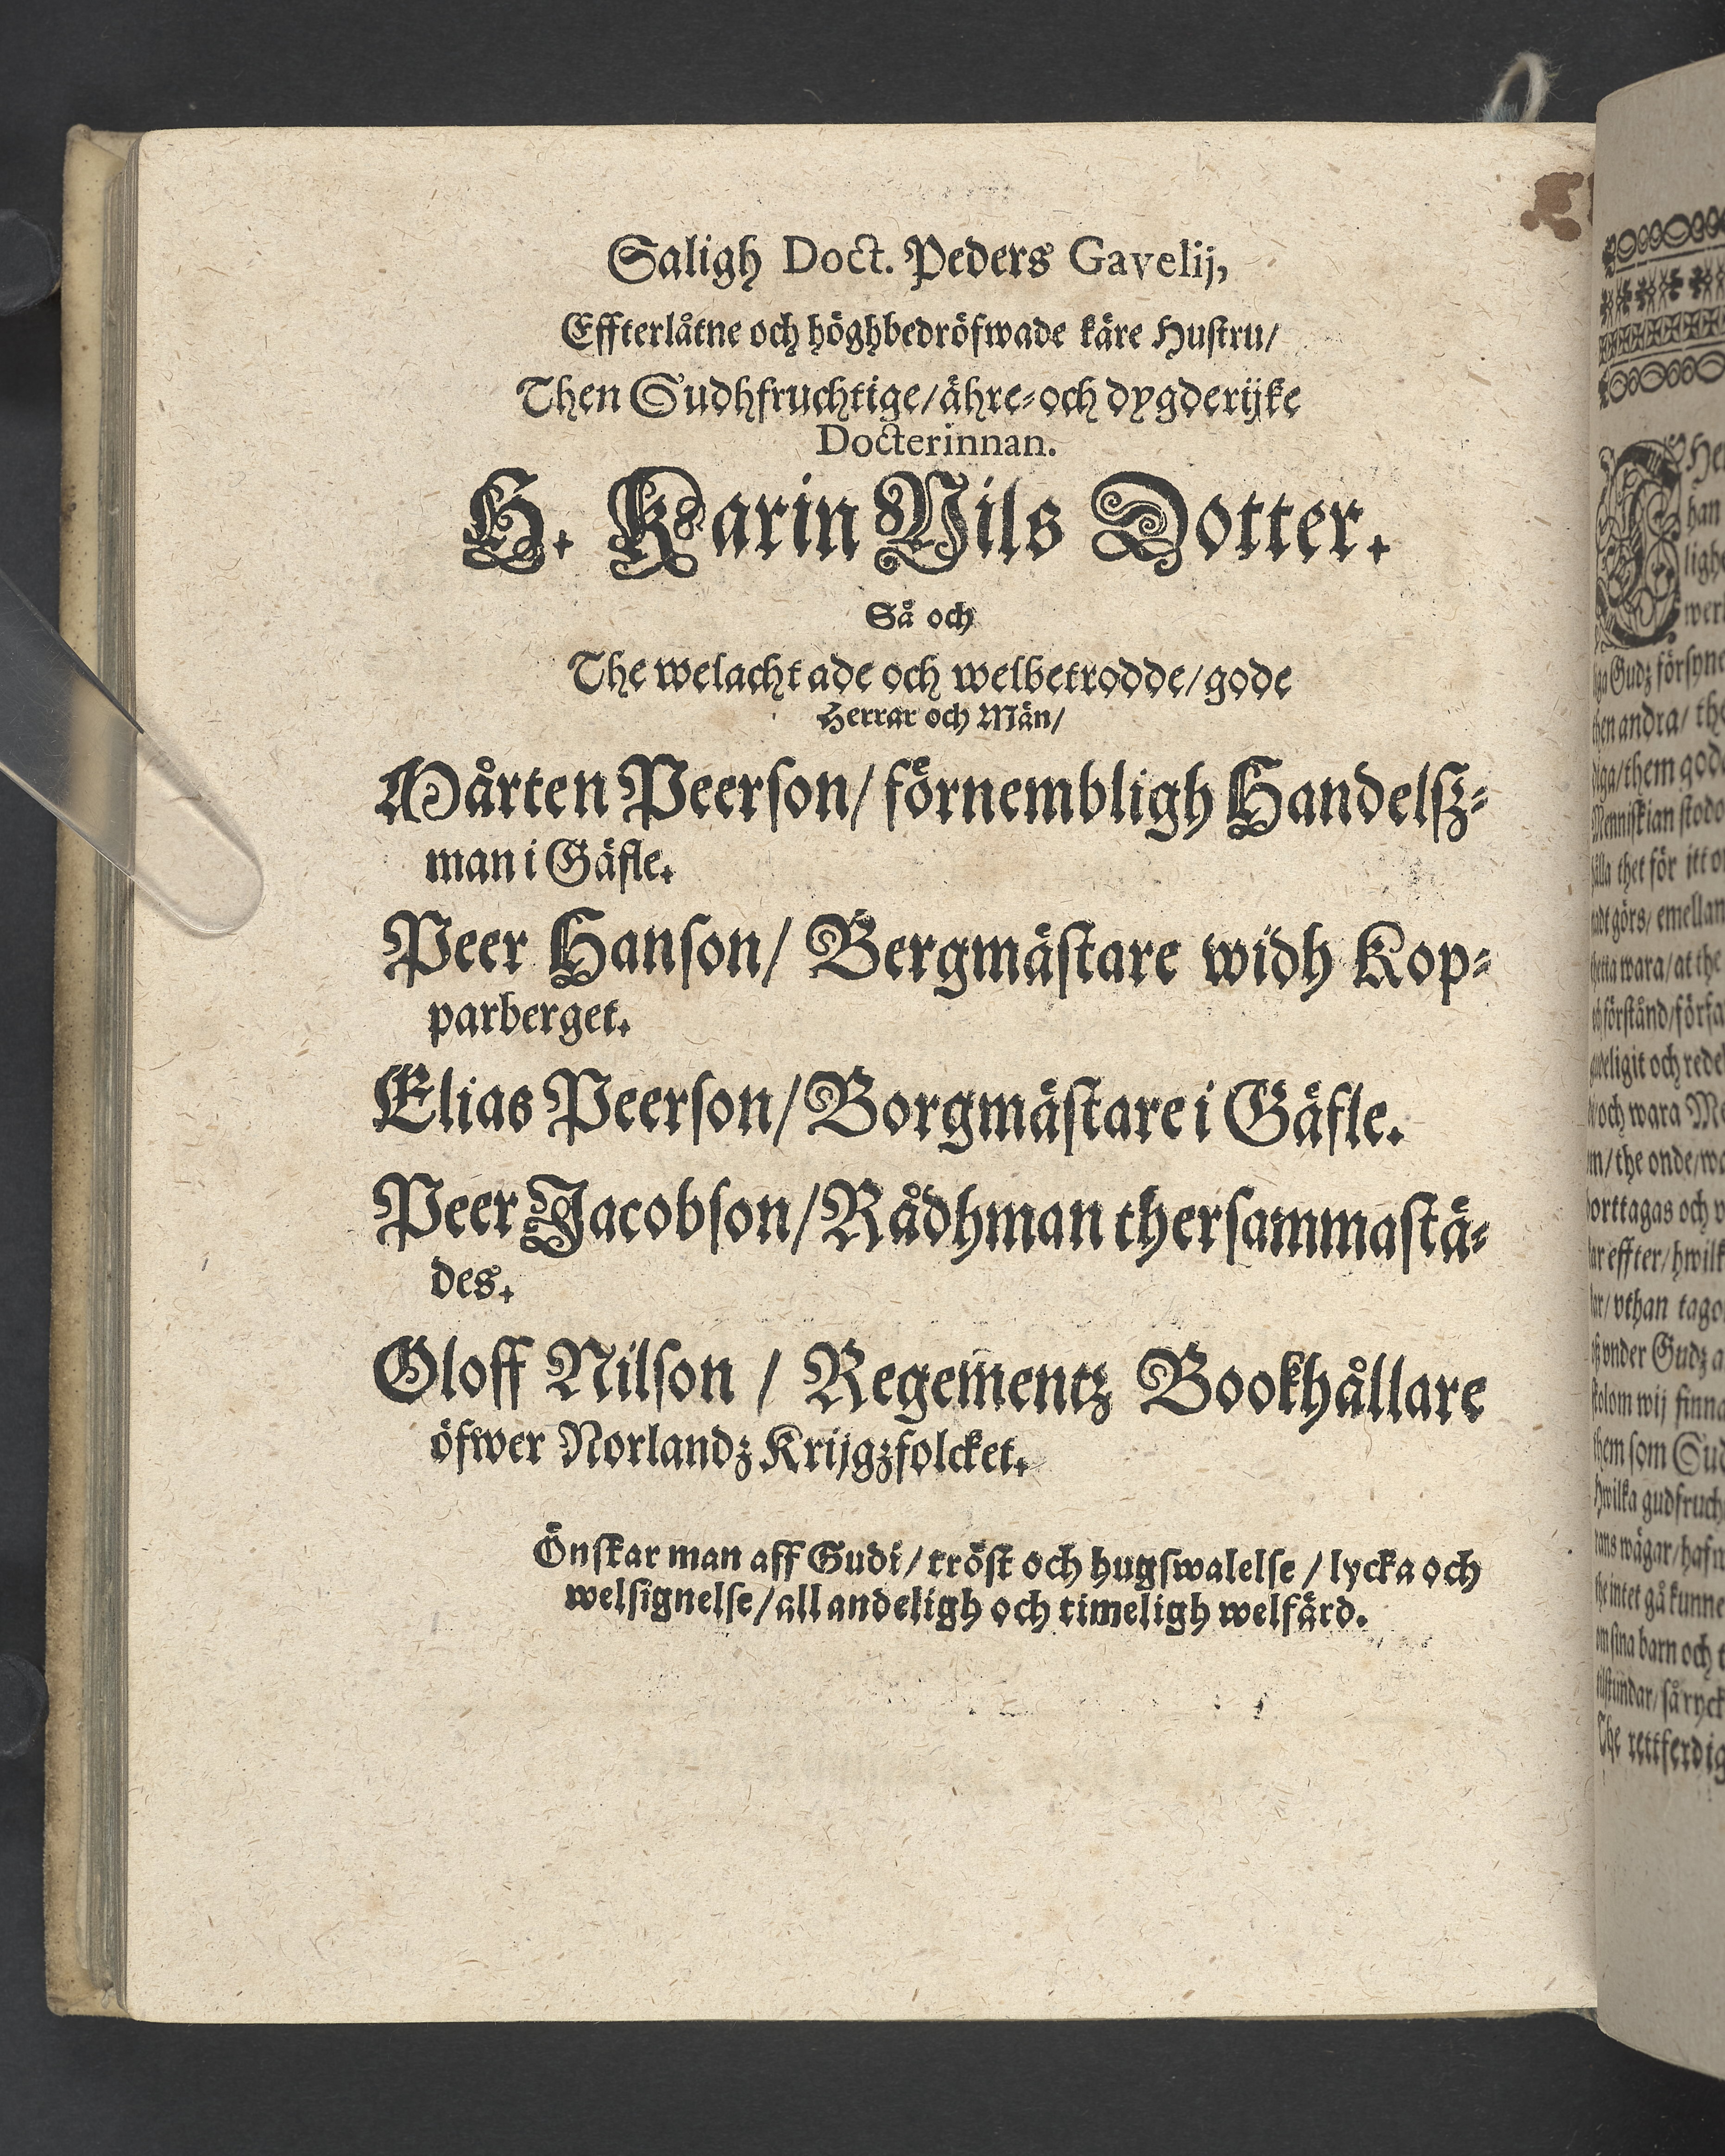 Saligh Doct. Peders Gavelij,
Effterlåtne och höghbedröfwade käre Hustru/
Then Gudhfruchtige/ ähre- och dygderijke
Docterinnan.
H. Karin Nils Dotter.
Så och
The welachtade och welbetrodde/ gode
Herrar och Män/
Mårten Peerson/ förnembligh Handelsz-
man i Gäfle.
Peer Hanson/ Bergmästare widh Kop-
parberget.
Elias Peerson/ Borgmästare i Gäfle.
Peer Jacobson/ Rådhman thersammastä-
des.
Oloff Nilson / Regementz Bookhållare
öfwer Norlandz Krijgzfolcket.
Önskar man aff Gudi/ tröst och hugswalelse / lycka och
welsignelse/ all andeligh och timeligh welfärd.
Her
han
ligh
wer
liga Gudz försyne
then andra/ the
diga/ them gode
Menniskian stodo
hålla thet för itt o
görs/ emellan
wara/ at the
förstånd/ förfa
och rede
och wara Me
the onde/ wo
borttagas och
effter/ hwilk
vthan tago
vnder Gudz a
wij finna
them som Gud
hwilka gudfruch
wägar/ hafw
the intet gå kunne
om sina barn och t
så ryck
The rettferdig